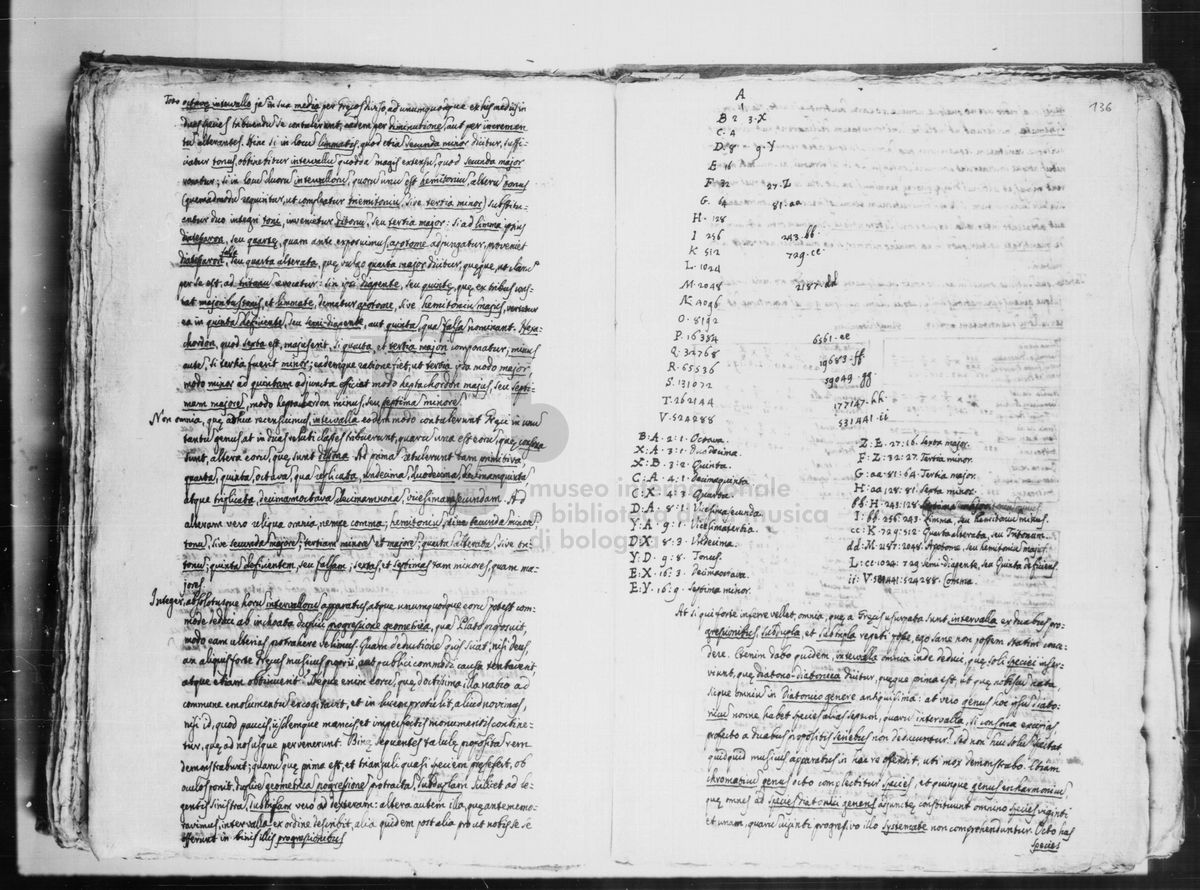 Tono octavę intervallo ja in sua media per
duas species tribuendu de contulerunt, eadem per diminutione, aut per incremen
ta alterantes. Hinc si in locu limmatis, quod etia secunda minor dicitur, suffi-
ciatur tonus, obtinebitur intervallu quodda magis extensu, quod secunda major
vocatur; si in locu duoru intervalloru, quoru unu est hemitoniu, alteru tonus
(quemadmodu requiritur, ut compleatur trihemitoniu, sive tertia minor) substitu-
antur duo integri toni, invenietur ditonu, seu tertia major: si ad limma ipsius
diatessaron, seu quartę, quam ante exposuimus, apotome adjungatur, proveniet
diatessaron, seu quarta alterata, quę vulgo quarta major dicitur, quęque, ut clam
per se est, ad tritonu revocatur: sin ipsi diapente, seu quintę, quę ex tribus cons-
tat majoribus tonis, et limmate, dematur apotome, sive hemitoniu majus, vertetur
ea in quinta deficiente, seu semi-diapente, aut quinta, qua falsa nominant. Hexa-
chordon, quod sexta est, majus erit, si quarta, et tertia major componatur; minus
autem, si tertia fuerit minor; eademque ratione fiet, ut tertia ipsa modo major,
modo minor ad quintam adjuncta efficiat modo heptachordon majus, seu septi-
mam majorę, modo heptachordon minus, seu septima minorę.
Non omnia, quę adhuc recensuimus, intervalla eodem modo contulerunt Gręci in unu
tantu genus, at in duas veluti classes tribuerunt, quaru una est eoru, quę consona
sunt, altera eoru, quę sunt dissona. Ad prima retulerunt tam primitiva
quarta, quinta, octava, qua replicata, undecima, duodecima, decimamquinta
atque triplicata, decimamoctava, decimamnona, vicesimamsecundam. Ad
alteram vero reliqua omnia, nempe comma; hemitoniu, sive secunda minorę
tonu, sive secunda majorę; tertiam minorę et majorę; quarta alterata, sive tri-
tonu; quinta deficientem, seu falsam; sextas, et septimas tam minores, quam ma-
jores.
Integer, absolutusque horu intervalloru apparatus, atque unumquodque eoru potest com-
mode deduci ab inchoata duplici progressione geometrica, qua Plato proposuit,
modo eam ulterius protrahere velimus. Quam deductione quis sciat, nisi Deus,
an aliquis forte Gręcus musicus propriu, aut publici commodi causa tentaverit,
atque etiam obtinuerit? Neque enim eoru, quę doctissima illa natio ad
commune emolumentu excogitavit, et in lucem protulit, aliud novimus,
nisi id, quod paucis, ijsdemque mancis, et imperfectis monumentis contine-
tur, quę ad nos usque pervenerunt. Binę sequentes tabulę proposita rem
demonstrabunt; quaru quę prima est, et tranquilli quasi seriem prę se fert, ob
oculos ponit, duplice geometrica progressione protracta, subduplam scilicet ad le-
gentis sinistra, subtriplam vero ad dexteram: altera autem illa, quę ante memo-
ravimus, intervalla ex ordine describit, alia quidem post alia prout nobis se se
offerunt in binis illis progressionibus
136
A
1
B 2 3·X
C· 4
D· 8 9·Y
E 16
F 32 27·Z
G· 64 81·aa
H· 128
I 256 243·bb·
K 512 729·cc·
L· 1024
M· 2048 2187·dd
N 4096
O· 8192
P· 16384 6561·ee
Q· 32768 19683·ff
R· 65536 59049·gg·
S· 131072
T· 262144 177147·hh·
V· 524288 531441·ii
B: A· 2: 1· Octava·
X: A· 3: 1· Duodecima·
X: B· 3: 2· Quinta·
C: A· 4: 1· Decimaquinta
C: X· 4: 3· Quarta·
D: A· 8: 1· Vicesimasecunda·
Y: A· 9: 1· Vicesimatertia·
D: X· 8: 3· Undecima·
Y: D· 9: 8· Tonus·
E: X· 16: 3· Decimaoctava·
E: Y· 16: 9· Septima minor·
Z: E· 27: 16· Sexta major·
F: Z· 32: 27· Tertia minor·
G: aa· 81: 64· Tertia major·
H: aa· 128: 81· Sexta minor·
bb: H· 243: 128·
I: bb· 256: 243· Limma, seu hemitoniu minus·
cc: K· 729: 512· Quarta alterata, seu Tritonum·
dd: M· 2187: 2048· Apotome, seu hemitoniu majus·
L: cc· 1024: 729· Semi-diapente, seu Quinta deficiens·
ii: V· 531441: 524288· Comma·
At si qui forte inferre vellet, omnia, quę a Gręcis usurpata sunt, intervalla ex duabus pro-
gressionibus, subdupla, et subtripla repeti posse, ego sane non possem statim conce-
dere. Etenim dabo quidem, intervalla omnia inde deduci, quę soli speciei inser-
viunt, quę diatono-diatonica dicitur, quęque prima est, ut quę nobiscu nata,
sitque omniu in diatonico genere antiquissima: at vero genus hoc ipsu diato-
nicu nonne habet species alias septem, quaru intervalla, si consona excipias
profecto a duabus propositis seriebus non descuntur? Sed non huc solus spectat
quidquid musicus apparatus in hac re ostendit, uti mox demonstrabo. Etiam
chromaticu genus octo complectitur species, et quinque genus enharmonicu
quę omnes ad species diatonici generis adjunctę constituunt omnino species viginti
et unam, quaru viginti progressivo illo systemate non comprehenduntur. Octo has
species
museo internazionale
biblioteca della musica
di bologna